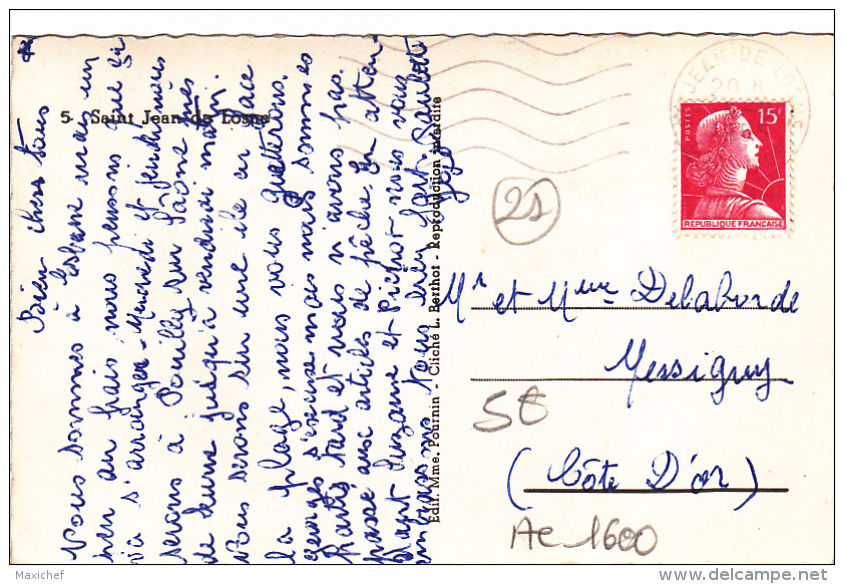 5 - Saint Jean de Losne
Bien chers tous
Nous sommes à Losne mais un
peu au frais, nous pensons que ça
va s'arranger - Mercredi et jeudi nous
serons à Pouilly sur Saône près
de Seurre jusqu'à vendredi matin.
Nous serons sur une île en face
la plage, nous vous guetterons.
Georges s'excuse mais nous sommes
partis tard et nous n'avons pas
passé aux articles de pêche. En atten-
dant Suzanne et Pichot nous vous
embrassons tous bien fort.
Edit. Mme. Fournin - Cliché L. Berthot - Reproduction interdite
JEAN-DE-LOSNE
20 H
POSTES
15F
REPUBLIQUE FRANÇAISE
21
Mr et Mme Delaborde
Messigny
5€
(Côte D'or)
AC 1600
Maxichef
http://www.delcampe.net